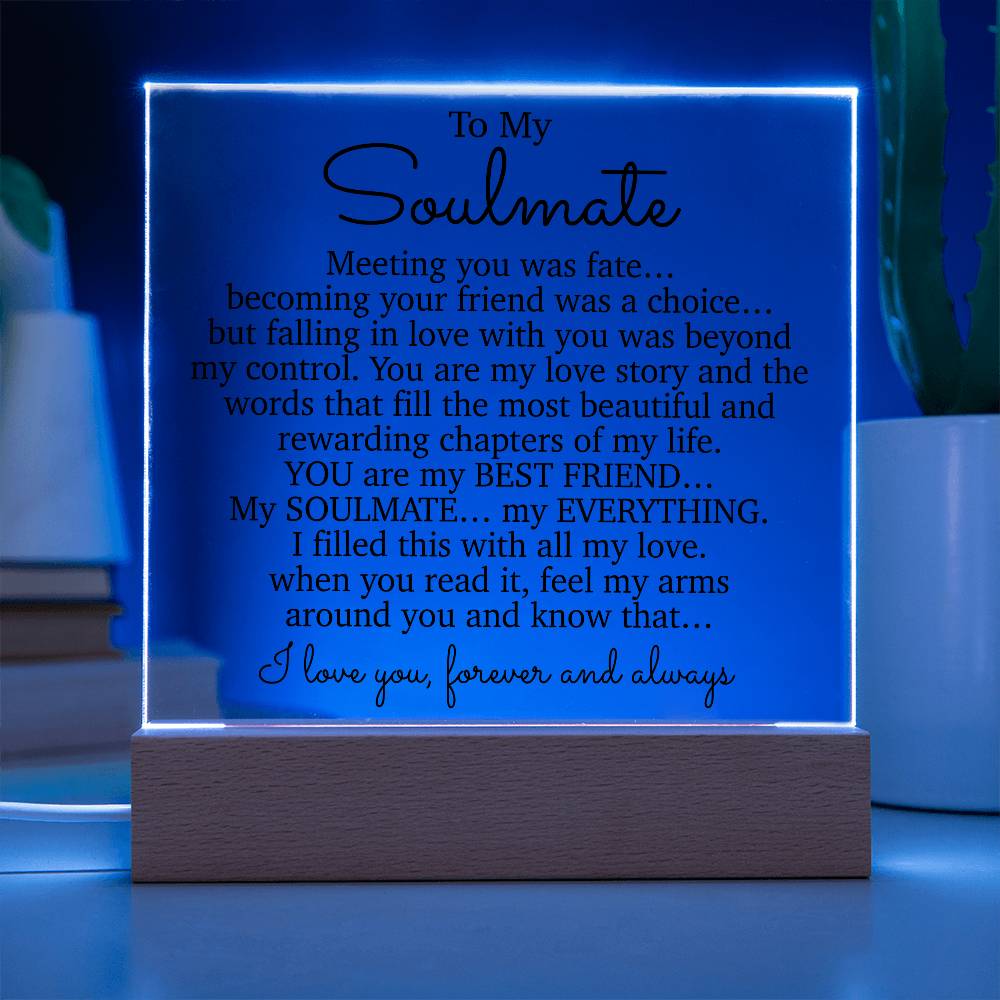 To My
Soulmate
Meeting you was fate...
becoming your friend was a choice...
but falling in love with you was beyond
my control. You are my love story and the
words that fill the most beautiful and
rewarding chapters of my life.
YOU are my BEST FRIEND...
My SOULMATE... my EVERYTHING.
I filled this with all my love.
when you read it, feel my arms
around you and know that...
I love you, forever and always